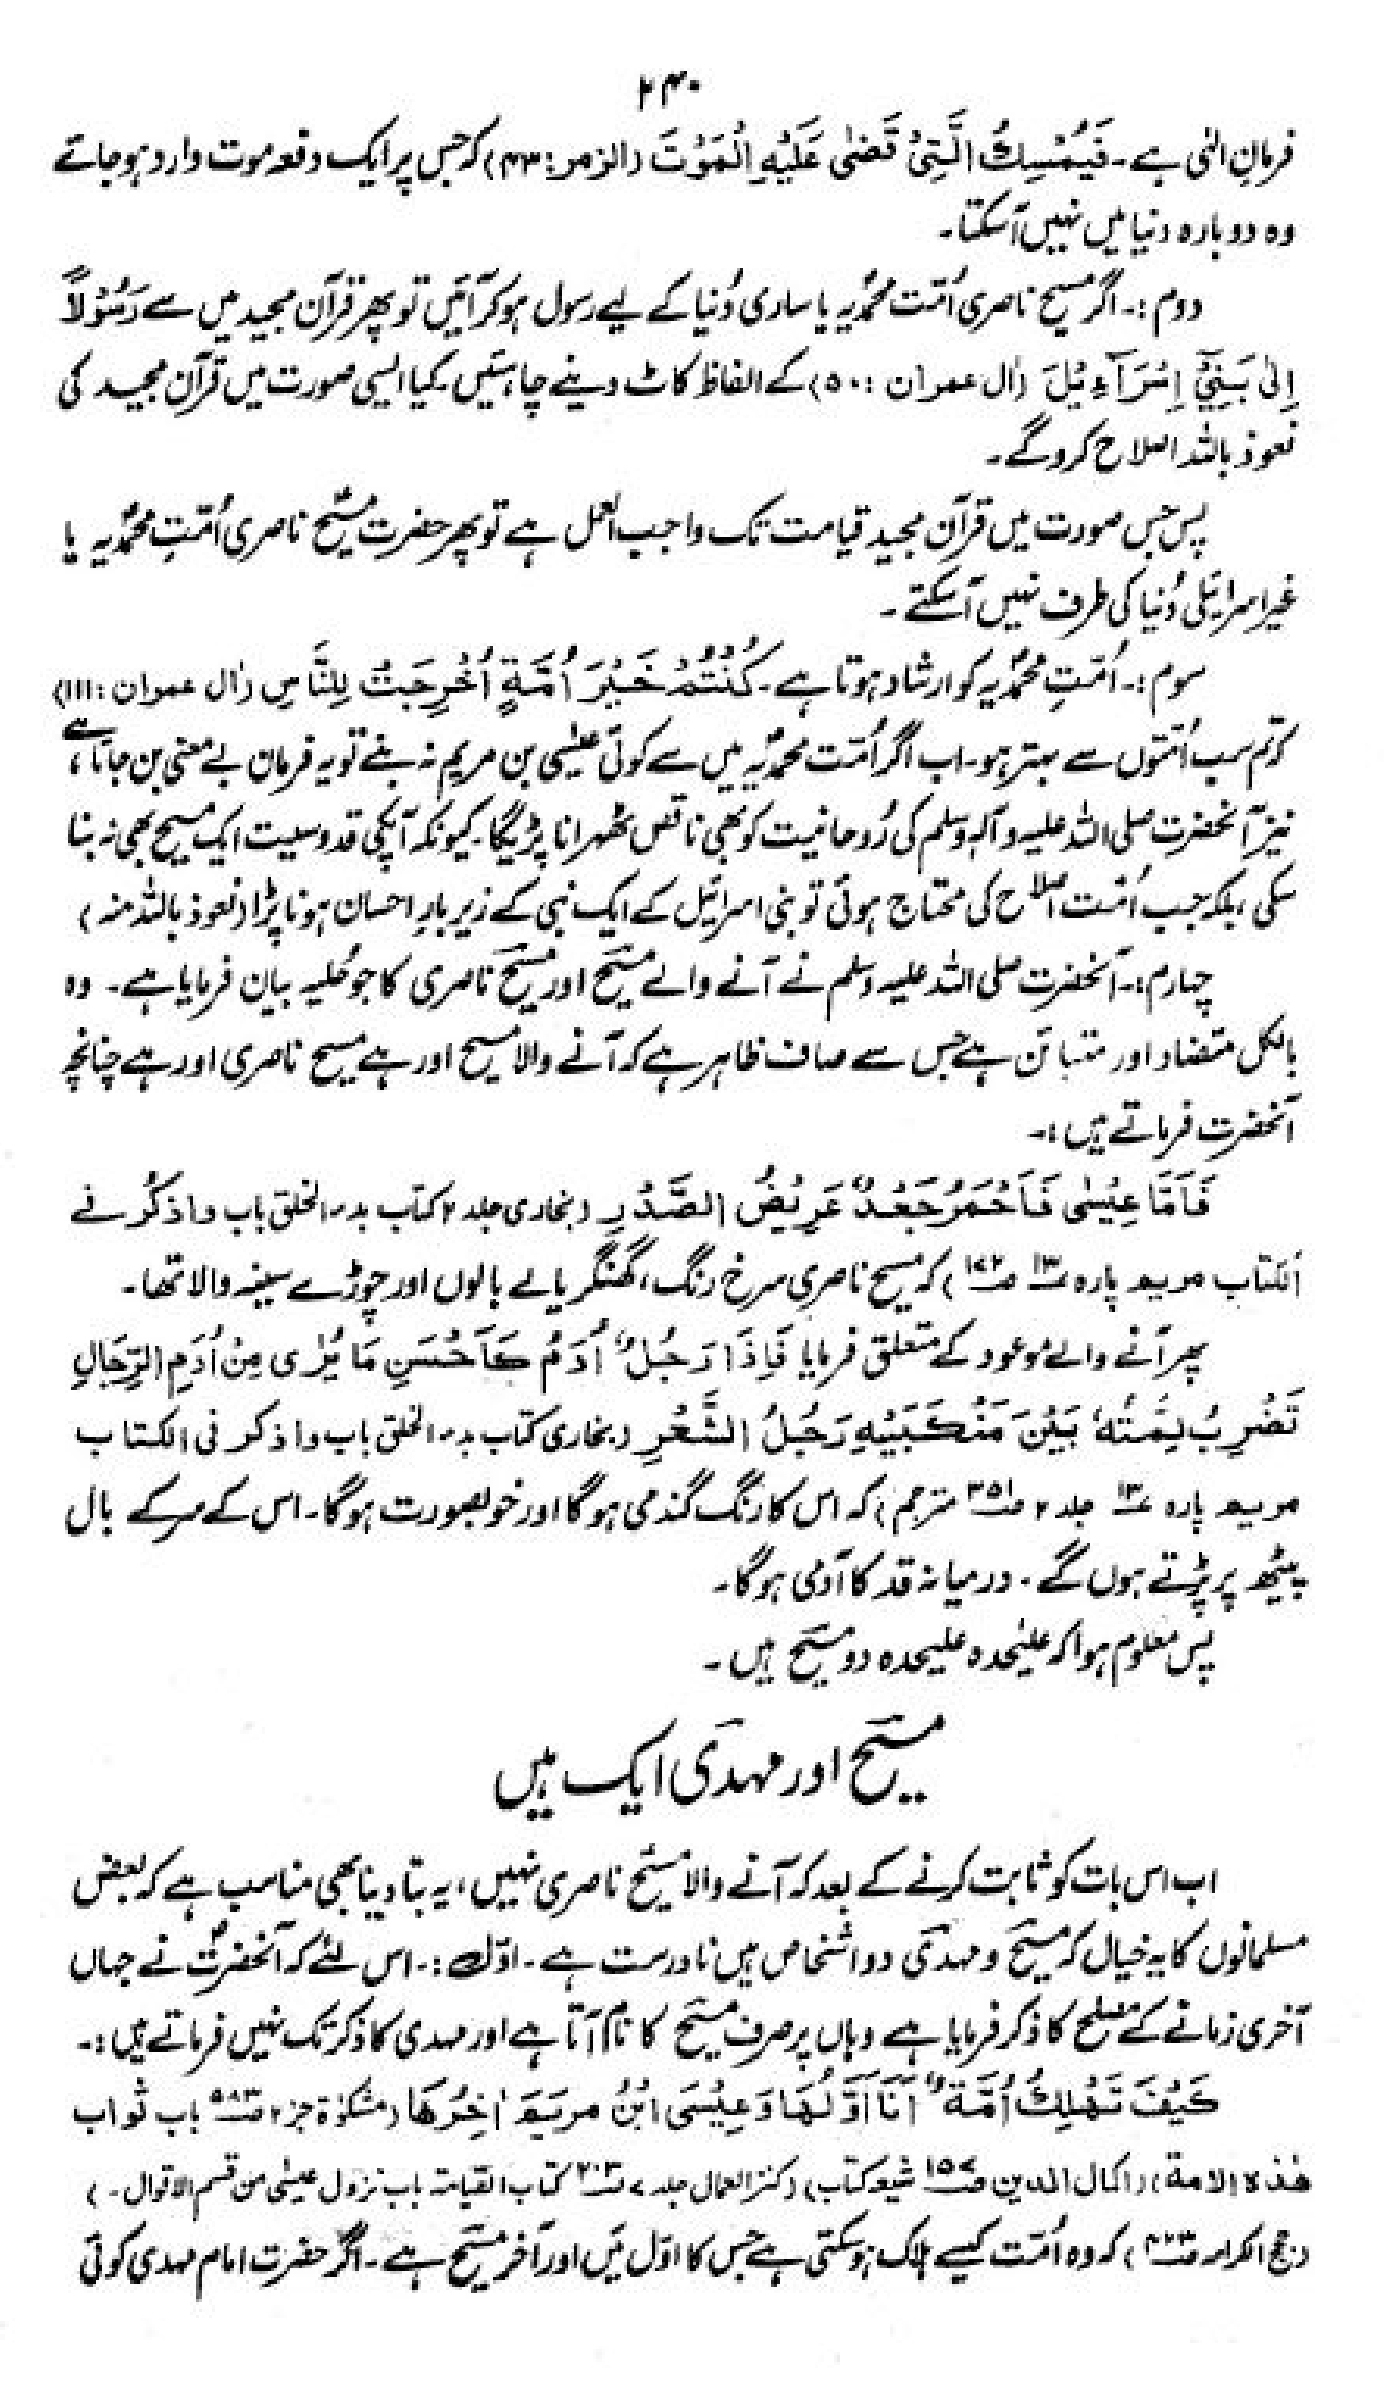 ۲۴۰
فرمانِ الٰہی ہے۔ فَيُمْسِكُ الَّتِيْ قَضٰى عَلَيْهِ الْمَوْتَ (الزمر: ۴۳) کہ جس پر ایک دفعہ موت وارد ہو جائے
وہ دوبارہ دنیا میں نہیں آسکتا۔
دوم:۔ اگر مسیح ناصری اُمّت محمدؐیہ یا ساری دُنیا کے لیے رسول ہو کر آئیں تو پھر قرآن مجید میں سے رَسُوْلًا
اِلٰى بَنِيْٓ اِسْرَآءِيْلَ (اٰل عمران: ۵۰) کے الفاظ کاٹ دینے چاہئیں۔ کیا ایسی صورت میں قرآن مجید کی
نعوذ باللہ اصلاح کرو گے۔
پس جس صورت میں قرآن مجید قیامت تک واجب العمل ہے تو پھر حضرت مسیحؑ ناصری اُمّتِ محمدؐیہ یا
غیر اسرائیلی دُنیا کی طرف نہیں آسکتے۔
سوم:۔ اُمّتِ محمدؐیہ کو ارشاد ہوتا ہے۔ كُنْتُمْ خَيْرَ اُمَّةٍ اُخْرِجَتْ لِلنَّاسِ (اٰل عمران: ۱۱۱)
کہ تم سب اُمّتوں سے بہتر ہو۔ اب اگر اُمّت محمدؐیہ میں سے کوئی عیسٰی بن مریم نہ بنے تو یہ فرمان بے معنی بن جاتا ہے،
نیز آنحضرت صلی اللہ علیہ وآلہٖ وسلم کی رُوحانیت کو بھی ناقص ٹھہرانا پڑیگا۔ کیونکہ آپکی قدوسیت ایک مسیح بھی نہ بنا
سکی بلکہ جب اُمّت اصلاح کی محتاج ہوئی تو بنی اسرائیل کے ایک نبی کے زیر بارِ احسان ہونا پڑا (نعوذ باللہ منہ)
چہارم:۔ آنحضرت صلی اللہ علیہ وسلم نے آنے والے مسیحؑ اور مسیحؑ ناصری کا جو حُلیہ بیان فرمایا ہے۔ وہ
بالکل متضاد اور متبائن ہے جس سے صاف ظاہر ہے کہ آنے والا مسیح اور ہے مسیح ناصری اور ہے چنانچہ
آنحضرت فرماتے ہیں:۔
فَاَمَّا عِيْسٰى فَاَحْمَرُ جَعْدٌ عَرِيْضُ الصَّدْرِ (بخاری جلد ۲ کتاب بدء الخلق باب واذکر فے
الکتاب مریم پارہ ۱۳ ) کہ مسیح ناصری سرخ رنگ، گھنگریالے بالوں اور چوڑے سینہ والا تھا۔
پھر آنے والے موعود کے متعلق فرمایا فَاِذَا رَجُلٌ اٰدَمُ كَاَحْسَنِ مَا يُرٰى مِنْ اُدَمِ الرِّجَالِ
تَضْرِبُ لِمَّتُهٗ بَيْنَ مَنْكَبَيْهِ رَجُلُ الشَّعْرِ (بخاری کتاب بدء الخلق باب واذکر فی الکتاب
مریم پارہ ۱۳ جلد ۲ ص۳۵۱ مترجم) کہ اس کا رنگ گندمی ہوگا اور خوبصورت ہوگا۔ اس کے سر کے بال
پیٹھ پر پڑتے ہوں گے۔ درمیانہ قد کا آدمی ہوگا۔
پس معلوم ہوا کہ علیٰحدہ علیحدہ دو مسیحؑ ہیں۔
مسیحؑ اور مہدیؑ ایک ہیں
اب اس بات کو ثابت کرنے کے بعد کہ آنے والا مسیحؑ ناصری نہیں، یہ بتا دینا بھی مناسب ہے کہ بعض
مسلمانوں کا یہ خیال کہ مسیحؑ و مہدیؑ دو اشخاص ہیں نادرست ہے۔ اوّل:۔ اس لئے کہ آنحضرتؐ نے جہاں
آخری زمانے کے مصلح کا ذکر فرمایا ہے وہاں پر صرف مسیحؑ کا نام آتا ہے اور مہدی کا ذکر تک نہیں فرماتے ہیں:۔
كَيْفَ تَهْلِكُ اُمَّةٌ اَنَا اَوَّلُهَا وَعِيْسَى ابْنُ مَرْيَمَ اٰخِرُهَا (مشکوٰۃ جز ۲ ص۵۸۳ باب ثواب
ھٰذہ الامۃ) (اکمال الدین ص۱۵۷ شیعہ کتاب) (کنز العمال جلد ۷ ص۲۰۳ کتاب القیامۃ باب نزول عیسٰی من قسم الاقوال۔)
(حجج الکرامہ ص۴۲۳) کہ وہ اُمّت کیسے ہلاک ہو سکتی ہے جس کا اوّل مَیں اور آخر مسیحؑ ہے۔ اگر حضرت امام مہدی کوئی